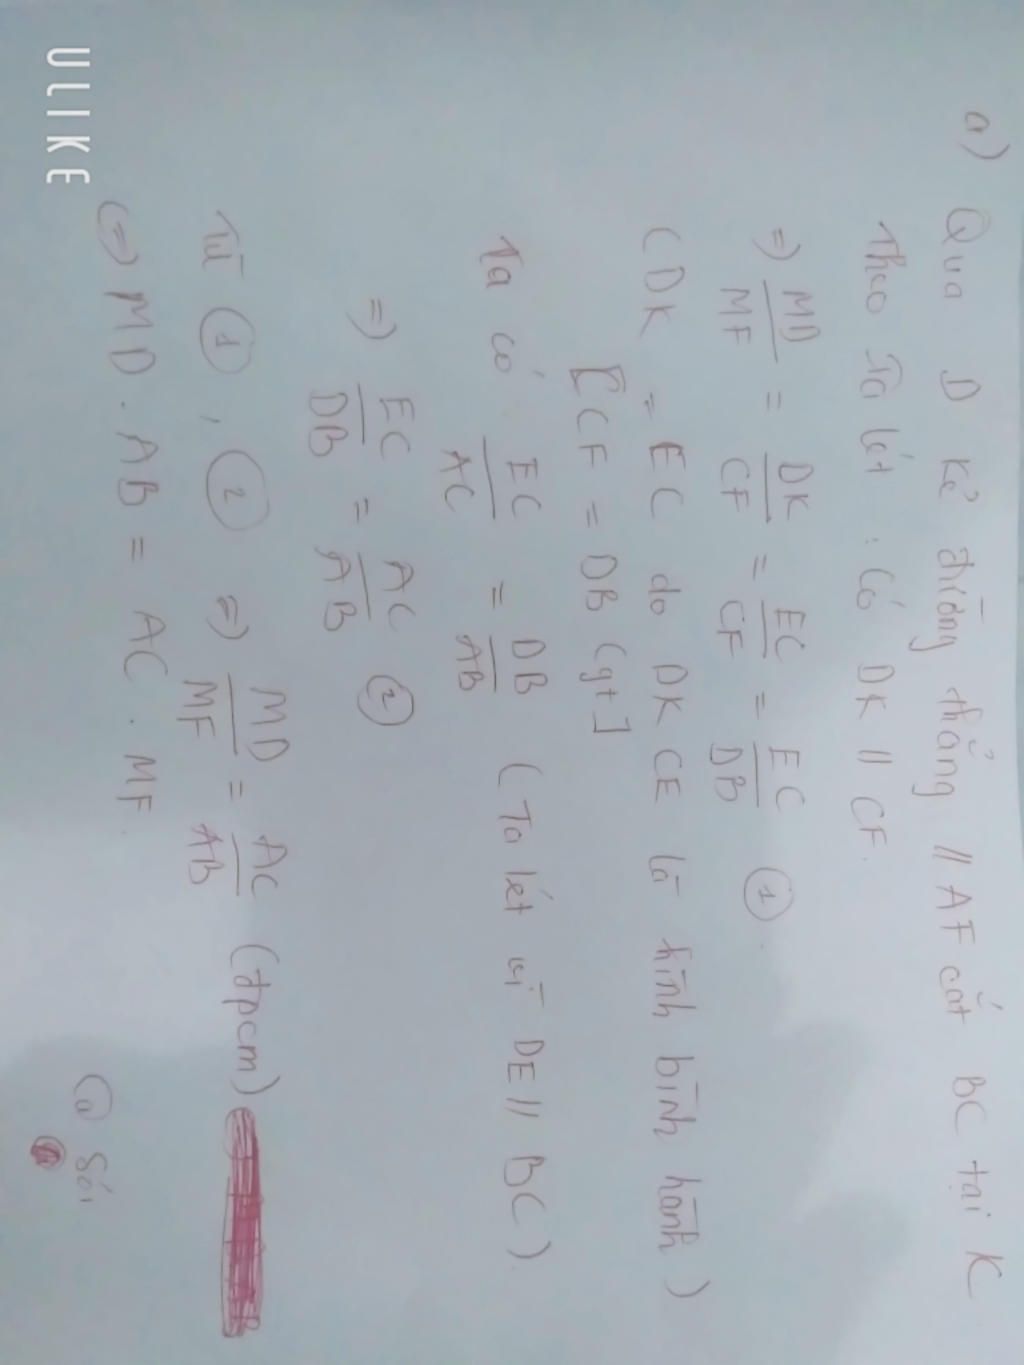 a) Qua D kẻ đường thẳng // AF cắt BC tại K
Theo Ta lét : Có DK // CF.
=> MD/MF = DK/CF = EC/CF = EC/DB (1).
(DK = EC do DKCE là hình bình hành)
[CF = DB (gt]
Ta có EC/AC = DB/AB (Ta lét vì DE // BC).
=> EC/DB = AC/AB (2)
Từ (1), (2) => MD/MF = AC/AB (đpcm)
(=) MD . AB = AC . MF.
@ Sói
ULIKE